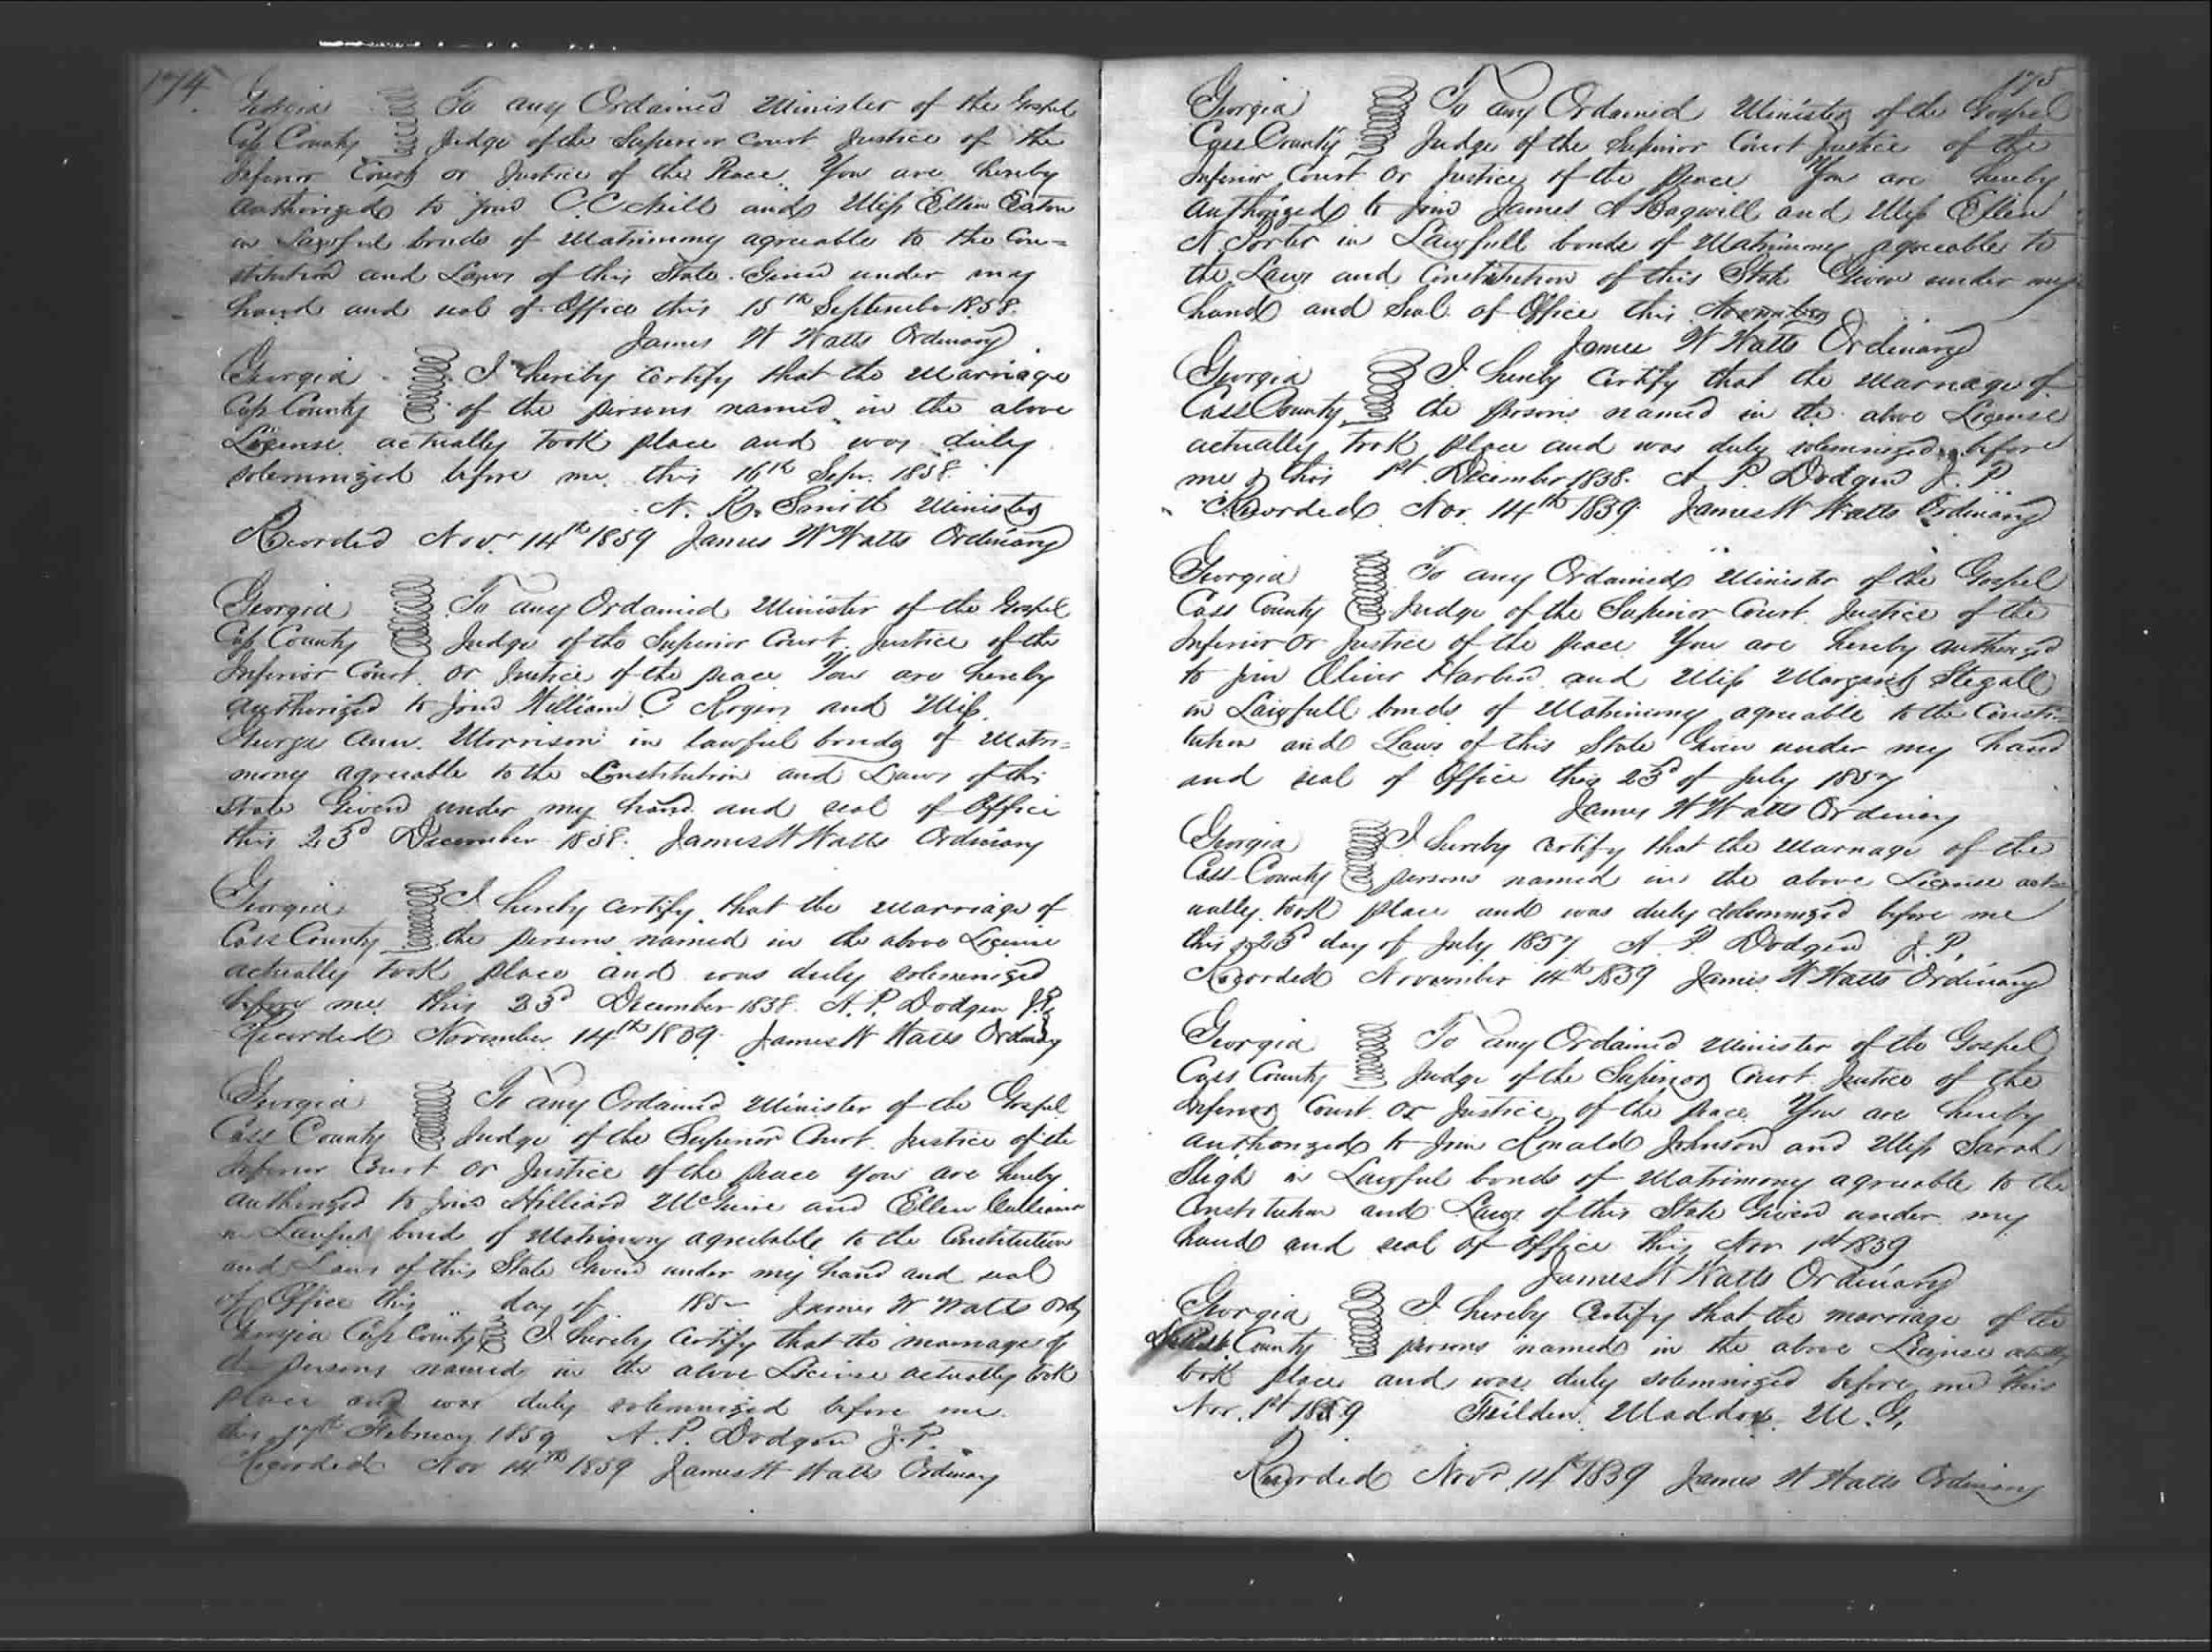 174
Georgia To any Ordained Minister of the Gospel
Cass County Judge of the Superior Court Justice of the
Inferior Court or Justice of the Peace. You are hereby
authorized to join C. C. Neill and Miss Ellen Eaton
in Lawful bonds of Matrimony agreeable to the Con=
stitution and Laws of this State. Given under my
hand and seal of Office this 15th September 1858.
James W Watts Ordinary
Georgia I hereby certify that the Marriage
Cass County of the persons named in the above
License actually took place and was duly
solemnized before me this 16th Sepr. 1858.
N. K. Smith Minister
Recorded Novr 14th 1859 James W Watts Ordinary
Georgia To any Ordained Minister of the Gospel
Cass County Judge of the Superior Court Justice of the
Inferior Court or Justice of the peace You are hereby
authorized to join William C Rogers and Miss
George Ann Morrison in lawful bonds of Matri=
mony agreeable to the Constitution and Laws of this
State Given under my hand and seal of Office
this 23d December 1858. James W Watts Ordinary
Georgia I hereby certify that the Marriage of
Cass County the persons named in the above License
actually took place and was duly solemnized
before me this 23d December 1858. A. P. Dodgen J.P.
Recorded November 14th 1859. James W Watts Ordinary
Georgia To any Ordained Minister of the Gospel
Cass County Judge of the Superior Court Justice of the
Inferior Court or Justice of the peace You are hereby
authorized to join Hilliard McGuire and Ellen
in Lawful bonds of Matrimony agreeable to the Constitution
and Laws of this State Given under my hand and seal
of Office this " day of 185– James W Watts Ordy
Georgia Cass County I hereby certify that the marriage of
the persons named in the above License actually took
place and was duly solemnized before me
this 17th February 1859 A. P. Dodgen J. P.
Recorded Nov 14th 1859 James W Watts Ordinary
175
Georgia To any Ordained Minister of the Gospel
Cass County Judge of the Superior Court Justice of the
Inferior Court or Justice of the peace You are hereby
authorized to join James A Bagwell and Miss Ellen
N Porter in Lawfull bonds of Matrimony agreeable to
the Laws and Constitution of this State Given under my
hand and Seal of Office this November
James W Watts Ordinary
Georgia I hereby certify that the Marriage of
Cass County the persons named in the above License
actually took place and was duly solemnized before
me this 1st December 1858. A. P. Dodgen J. P.
Recorded Nov. 14th 1859. James W Watts Ordinary
Georgia To any Ordained Minister of the Gospel
Cass County Judge of the Superior Court Justice of the
Inferior or Justice of the peace You are hereby authorized
to join Oliver Harbin and Miss Margaret Stegall
in Lawfull bonds of Matrimony agreeable to the Consti=
tution and Laws of this State Given under my hand
and seal of Office this 23d of July 1857
James W Watts Ordinary
Georgia I hereby certify that the Marriage of the
Cass County persons named in the above License act=
ually took place and was duly solemnized before me
this 23d day of July 1857 A. P. Dodgen J. P.
Recorded November 14th 1859 James W Watts Ordinary
Georgia To any Ordained Minister of the Gospel
Cass County Judge of the Superior Court Justice of the
Inferior Court or Justice of the peace You are hereby
authorized to join Ronald Johnson and Miss Sarah
Sligh in Lawful bonds of Matrimony agreeable to the
Constitution and Laws of this State Given under my
hand and seal of office this Nov 1st 1859
James W Watts Ordinary
Georgia I hereby certify that the marriage of the
County persons named in the above License actually
took place and was duly solemnized before me this
Nov. 1st 1859 Feilden Maddox M. G.
Recorded Novr 14th 1859 James W Watts Ordinary